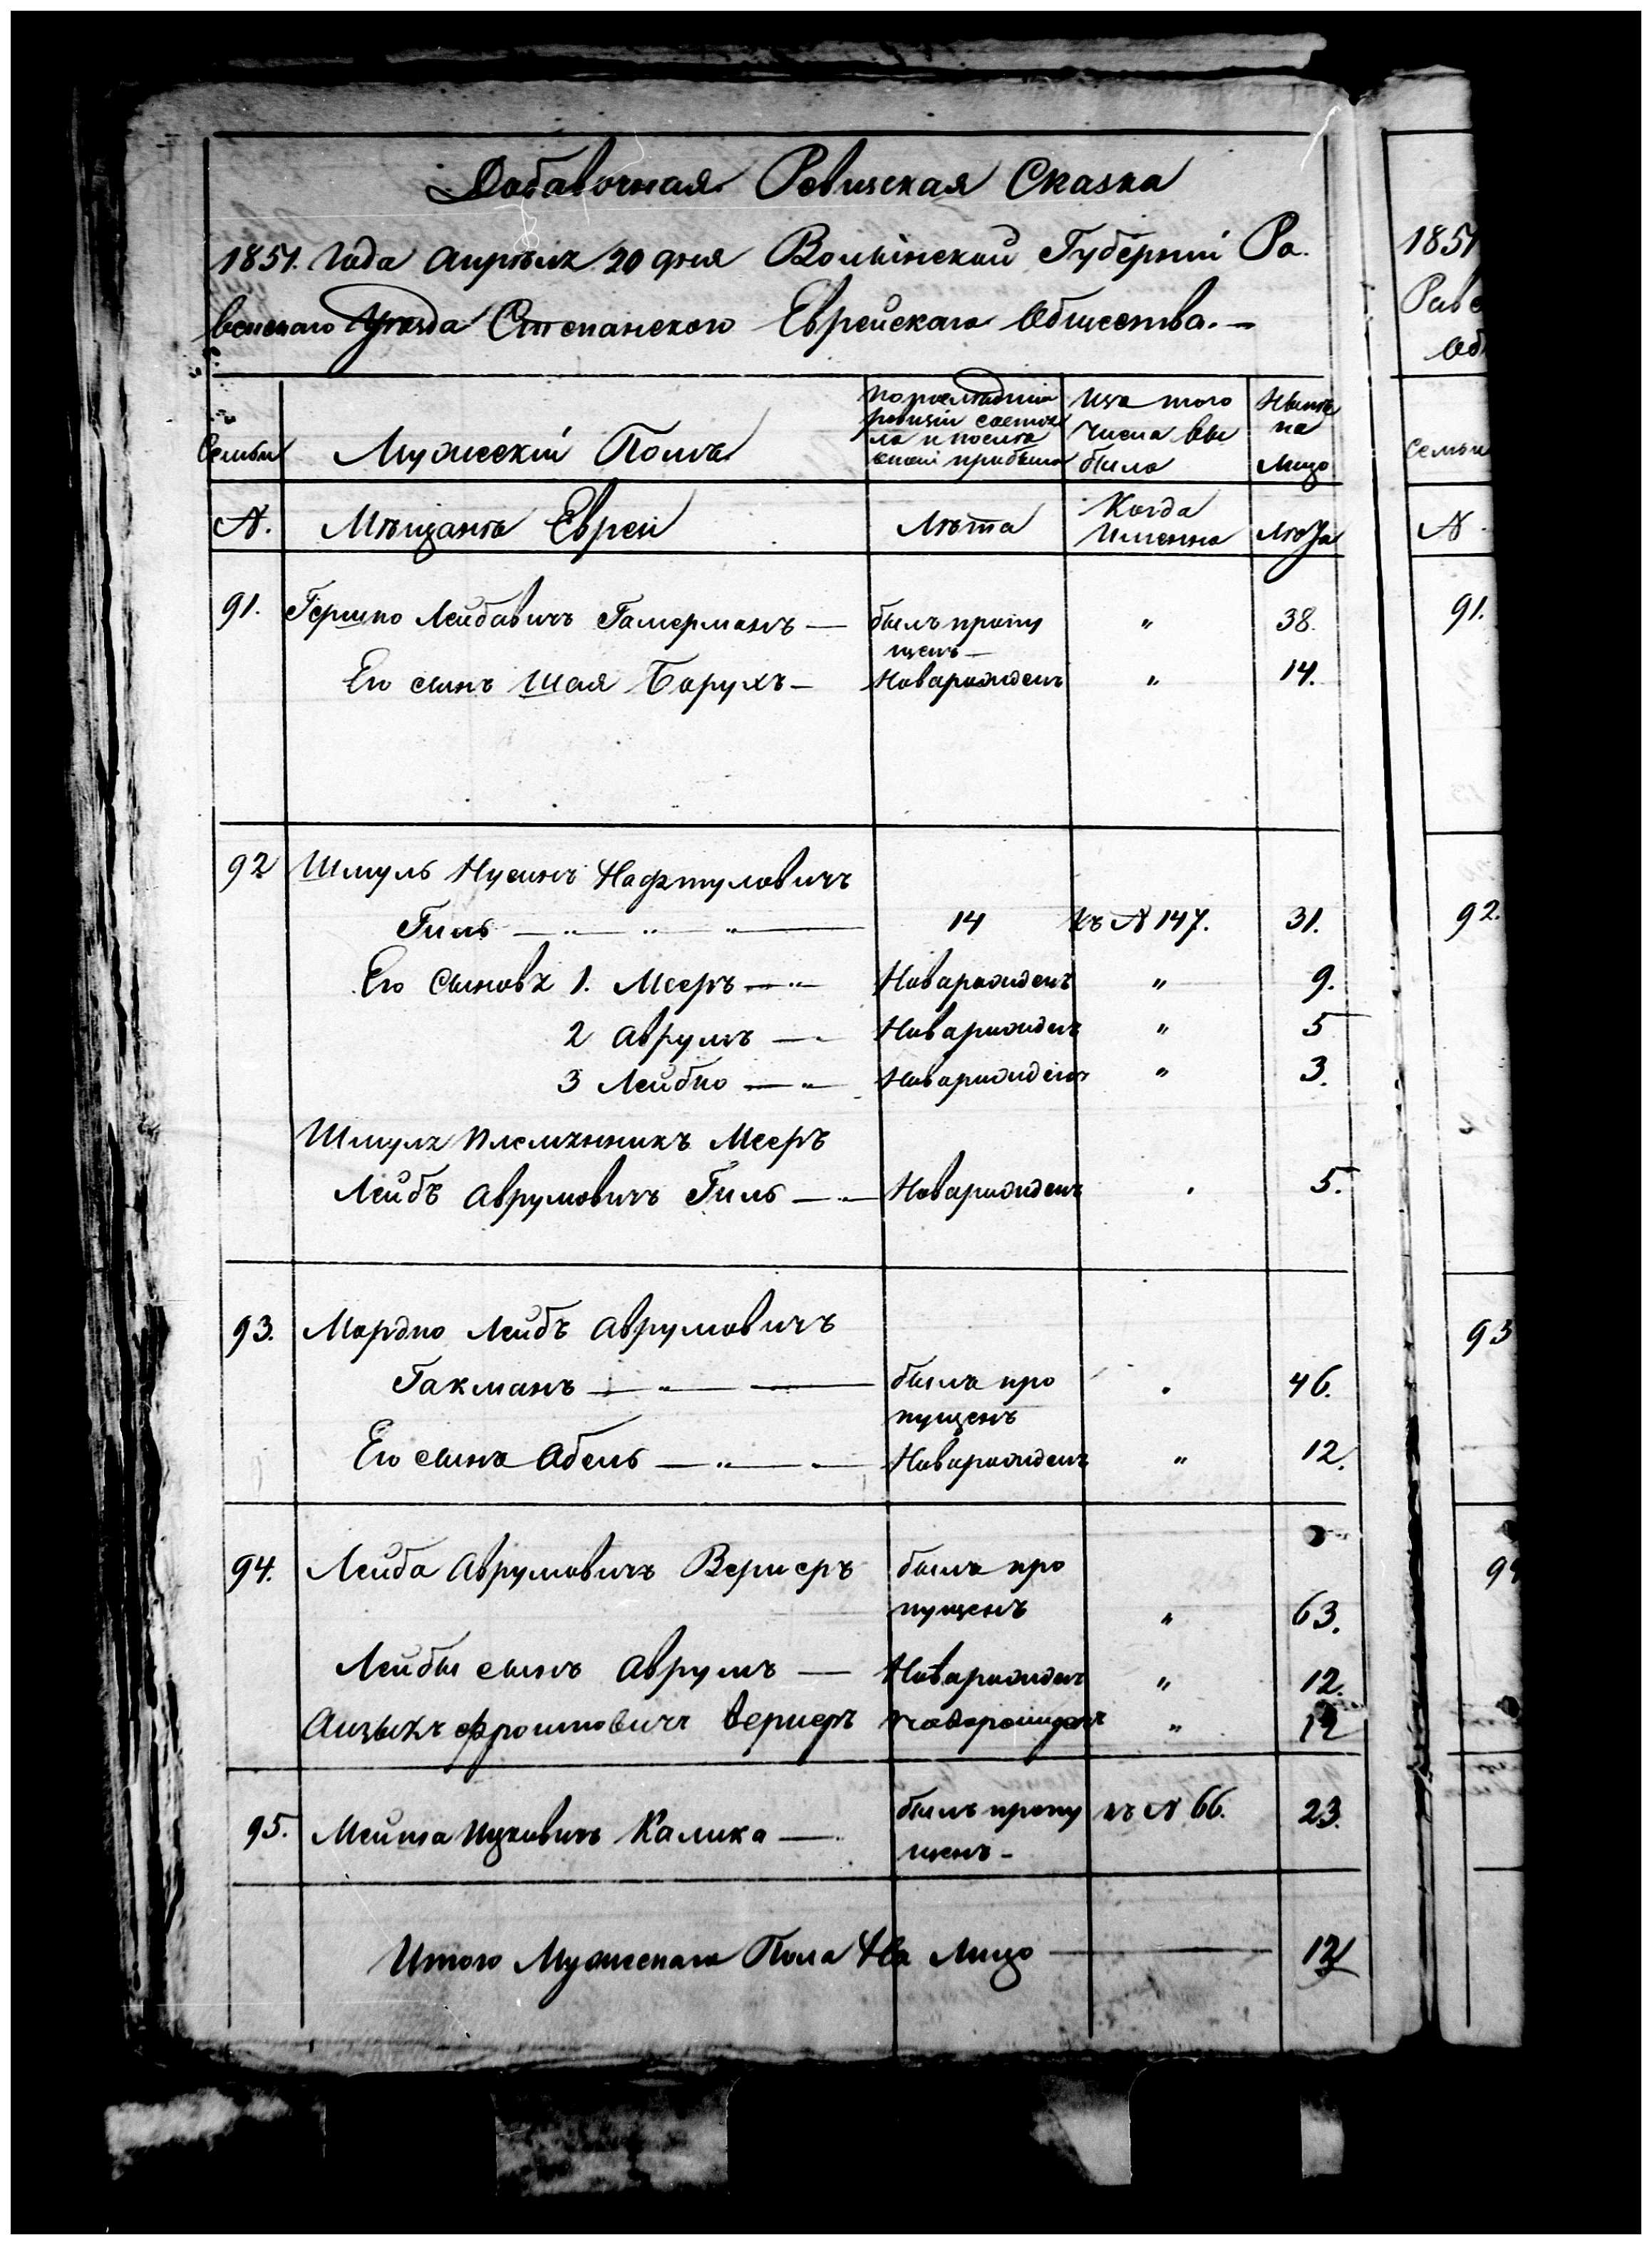 Добавочная Ревиская Сказка
1851. Года Апреля 20 дня Волынской Губерніи Ро-
венскаго Уезда Степанского Еврейскаго Общества.—
Семьи
Мужескій Полъ
по последней
ревизіи состоя
ло и после
оной прибыло
Изъ того
числа вы
было
Ныне
на
лицо
№.
Мещане Евреи
Лета
Когда
Именно
Лета
91. Гершко Лейбовичъ Гамерманъ — былъ пропу " 38.
щенъ —
Его сынъ Шая Борухъ — Новорожденъ " 14.
92 Шмуль Нусинъ Нафтуловичъ
Гиль — " " " — 14 Къ № 147. 31.
Его Сыновя 1. Мееръ — " Новорожденъ " 9.
2 Аврумъ — Новорожденъ " 5
3 Лейбко — " Новорожденъ " 3.
Шмуля племянникъ Мееръ
Лейбъ Аврумовичъ Гиль — Новорожденъ . 5.
93. Мордко Лейбъ Аврумовичъ
Гакманъ — " — былъ про . 46.
пущенъ
Его сынъ Абель — " — Новорожденъ " 12.
94. Лейба Аврумовичъ Вернеръ былъ про
пущенъ " 63.
Лейбы сынъ Аврумъ — Новорожденъ " 12.
Айзыкъ Фроимовичъ Вернеръ новорожденъ " 12
95. Калика — былъ пропу къ № 66. 23.
щенъ —
Итого Мужескаго Пола На Лицо —
1851
Рове
Об
семьи
№
91.
92.
93
94